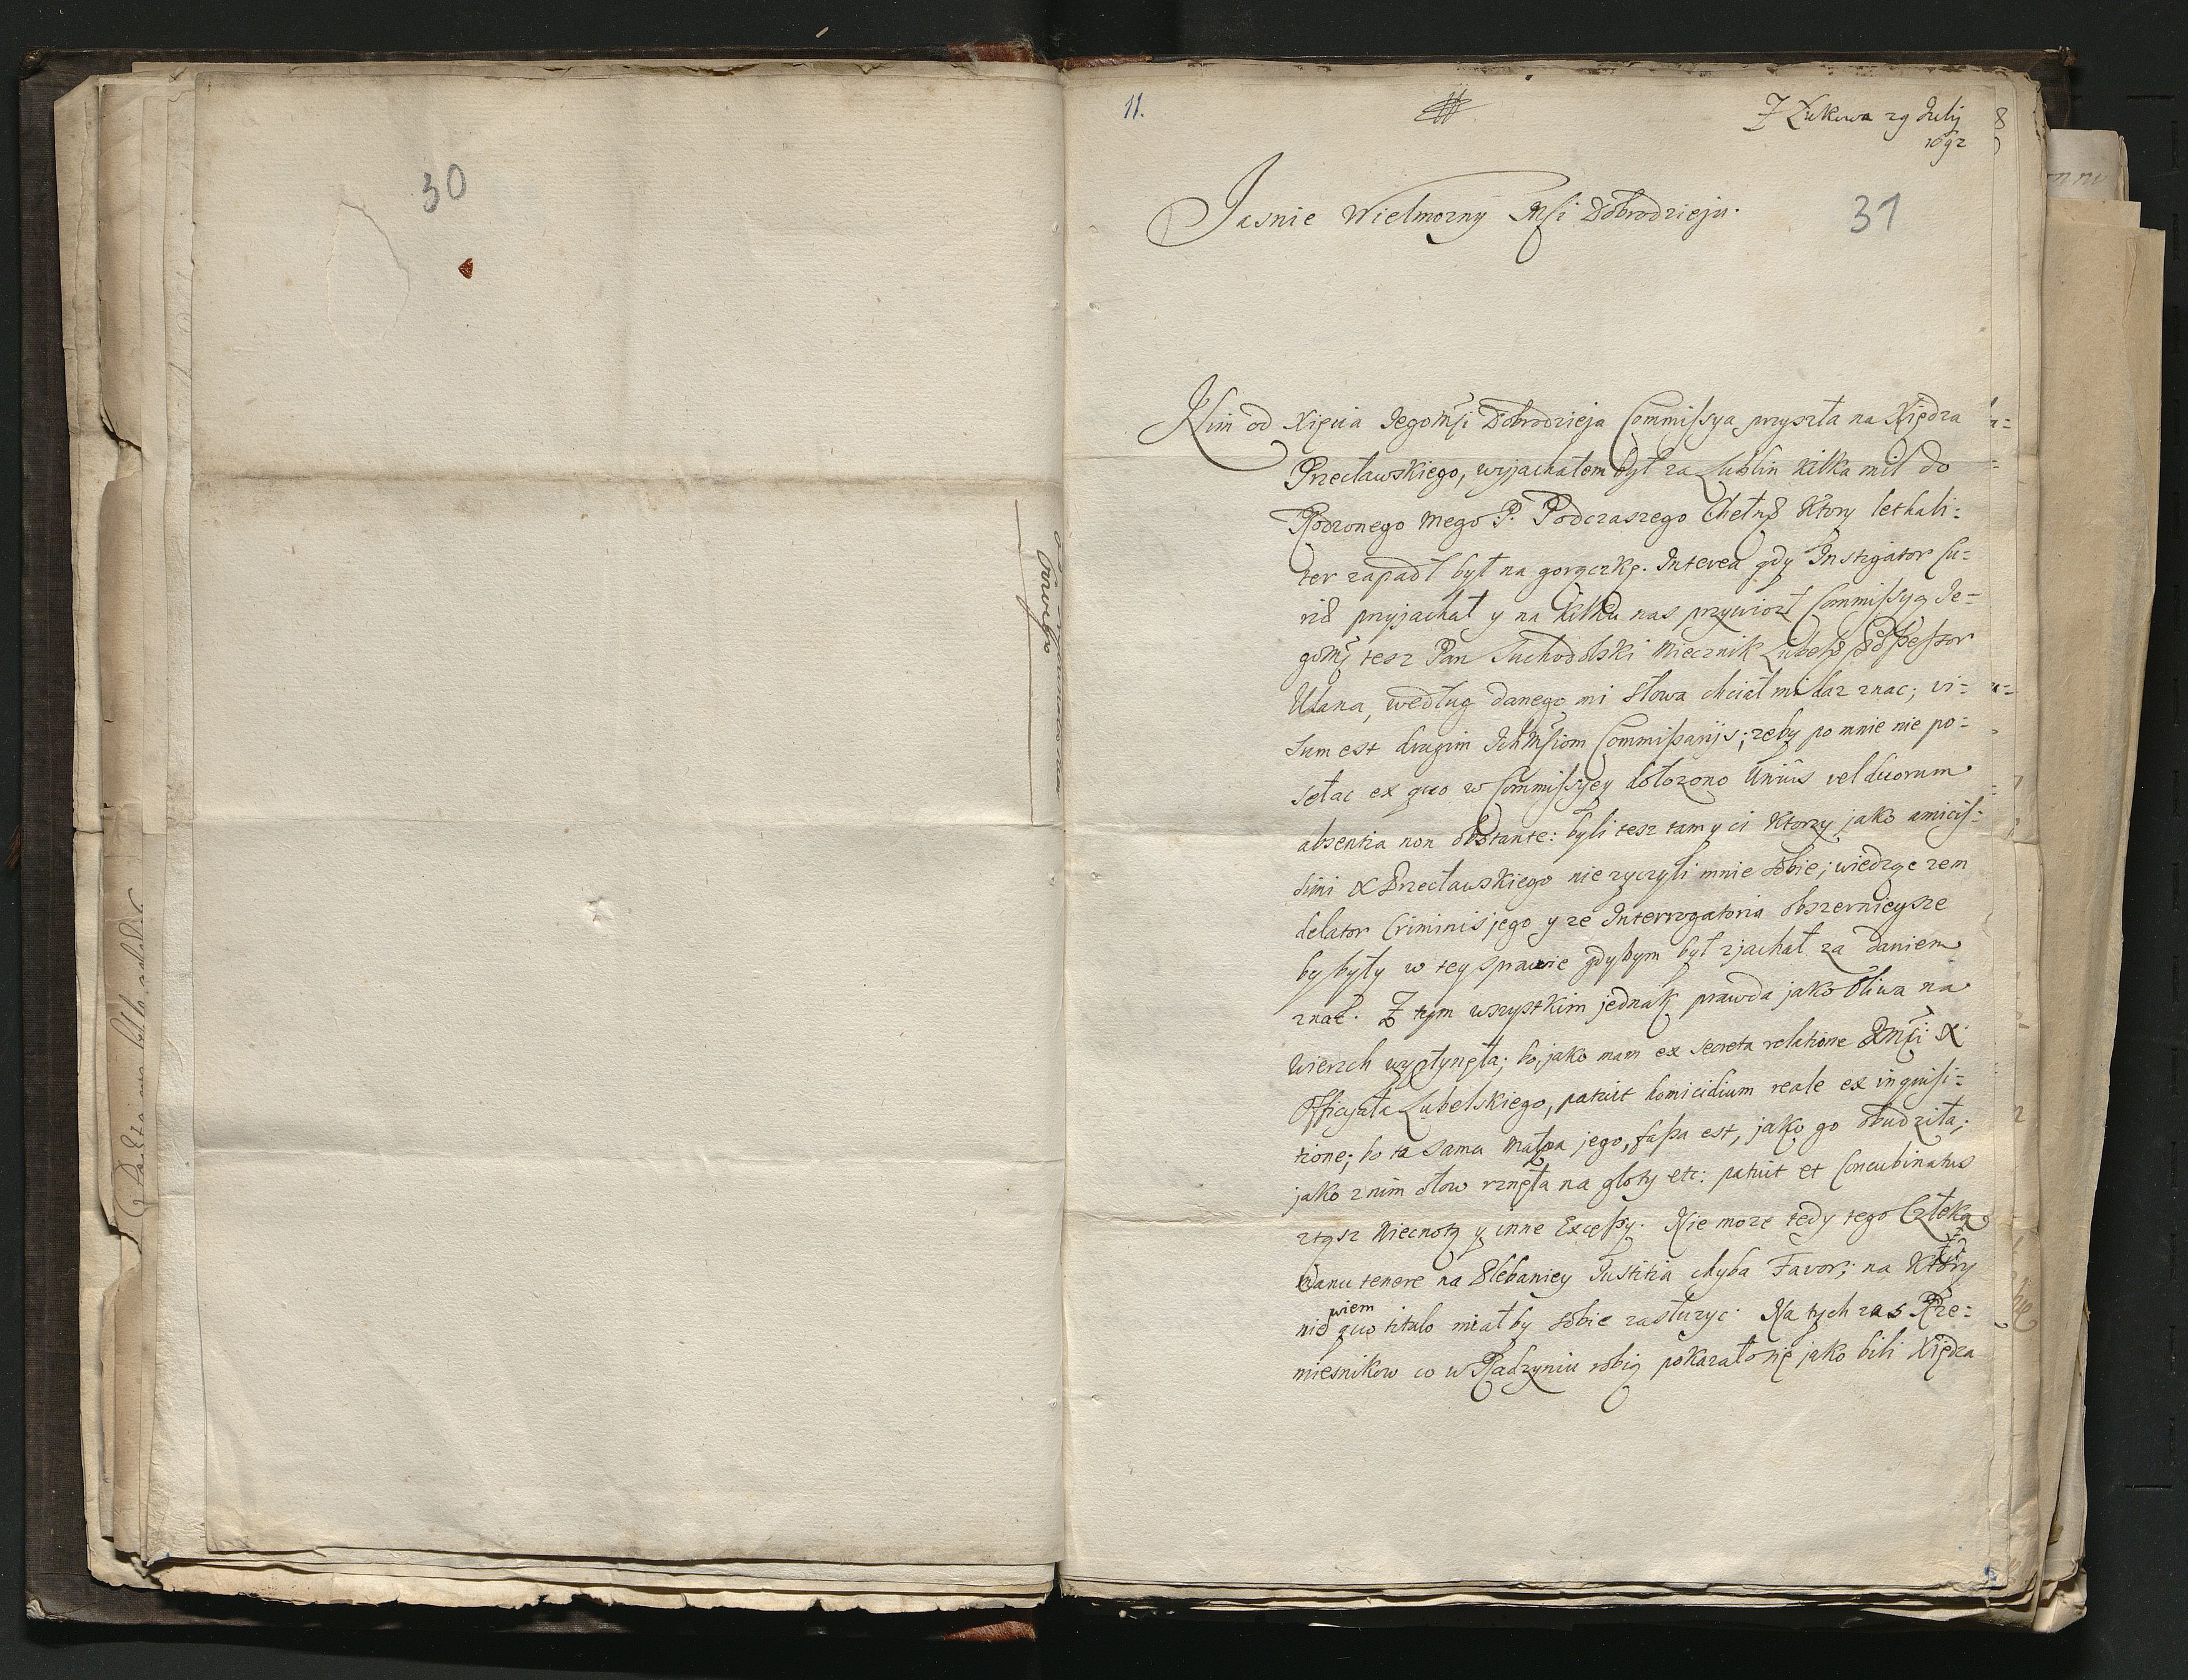 30
11.
Z Łukowa 29 Julij
1692
31
Jasnie Wielmozny Msci Dobrodzieju.
Nim od Xięcia Jegomsci Dobrodzieja Commissya przyszła na Xiędza
Przecławskiego, wyjachałem był za Lublin kilka mil do
Rodzonego mego P. Podczaszego Chełmo Ktory lethali=
ter zapadł był na gorączkę. Interea gdy Instigator Cu=
riæ przyjachał y na kilku nas przywiozł Commissyą Je=
gomsc tesz Pan Suchodolski Miecznik Lubelo Possessor
Ulana, według danego mi słowa chciał mi daz znac; vi=
sum est drugim Ichmsciom Commissarijs; zeby po mnie nie po=
sełac ex quo w Commissyey dołozono Unius vel duorum
absentia non obstante: byli tesz tam y ci Ktorzy jako amicis=
simi X Przecławskiego nie zyczyli mnie sobie; wiedząc zem
delator Criminis jego y ze Interrogatoria obszernieysze
by były w tey sprawie gdybym był zjachał za daniem
znać. Z tym wszystkim jednak prawda jako Oliwa na
wierzch wypłynęła; bo jako mam ex secreta relatione Jmsci X
Officyała Lubelskiego, patuit homicidium reale ex inquisi=
tione; bo ta sama Małpa jego, fassa est, jako go obudziła;
jako z nim słow rznęła na gloty etc: patuit et Concubinatus
ztąsz Niecnoty y inne Excessy. Nie moze tedy tego Człeka
manu tenere na Plebaniey Justitia chyba Favor; na Ktory
wiem
nie quo titulo miałby sobie zasłuzyc. Na tych zas Rze=
miesnikow co w Radzyniu robią pokazało się jako bili Xiędza